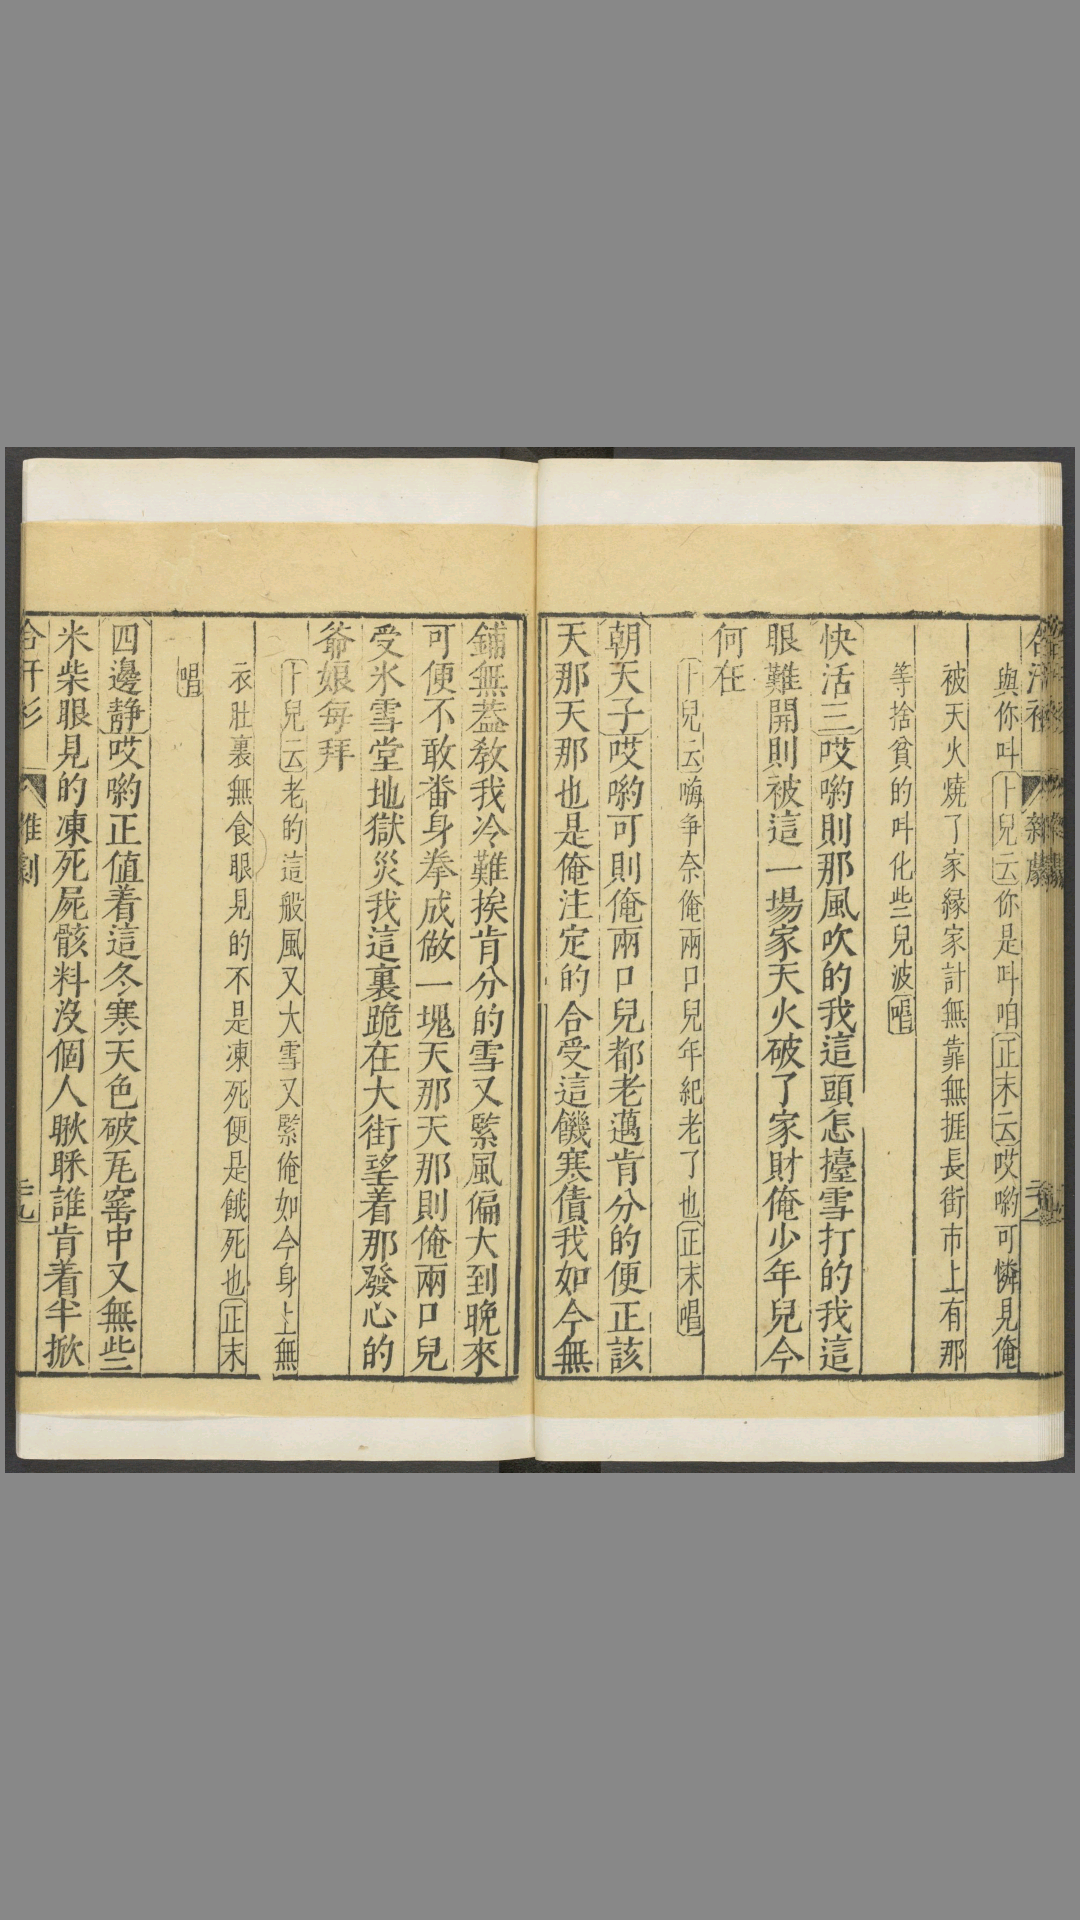 與你呌卜兒云你是呌咱正末云哎喲可憐見俺
被天火燒了家緣家計無靠無捱長街市上有那
等捨貧的呌化些兒波唱
快活三哎喲則那風吹的我這頭怎擡雪打的我這
眼難開則被這一場家天火破了家財俺少年兒今
何在
卜兒云嗨爭奈俺兩口兒年紀老了也正末唱
朝天子哎喲可則俺兩口兒都老邁肯分的便正該
天那天那也是俺注定的合受這饑寒債我如今無
鋪無蓋教我冷難挨肯分的雪又緊風偏大到晚來
可便不敢番身拳成做一塊天那天那則俺兩口兒
受氷雪堂地獄災我這裏跪在大街望着那發心的
爺娘每拜
卜兒云老的這般風又大雪又緊俺如今身上無
衣肚裏無食眼見的不是凍死便是餓死也正末
唱
四邊靜哎喲正值着這冬寒天色破瓦窰中又無些
米柴眼見的凍死屍骸料沒個人瞅睬誰肯着半掀
合汗衫 雜劇 二九